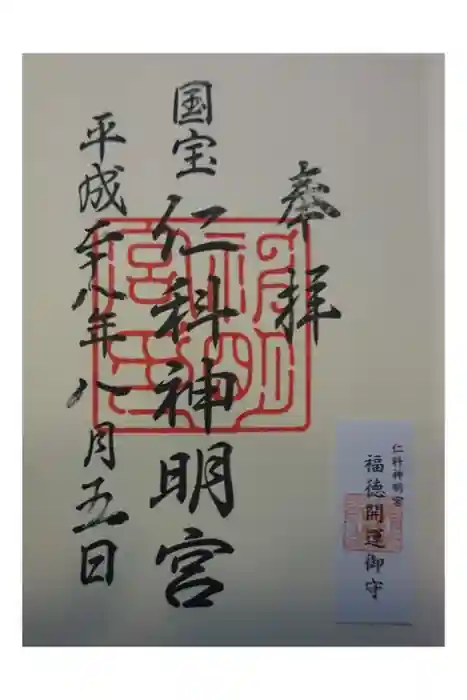 奉拝
国宝 仁科神明宮
平成二十八年八月五日
仁科神明宮
福徳開運御守